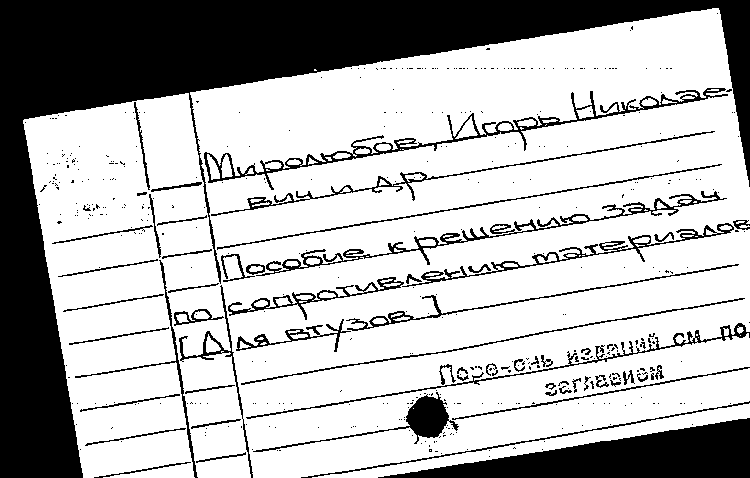 Миролюбов, Игорь Николае-
вич и др.
Пособие к решению задач
по сопротивлению материалов
[Для втузов]
Перечень изданий см. под
заглавием